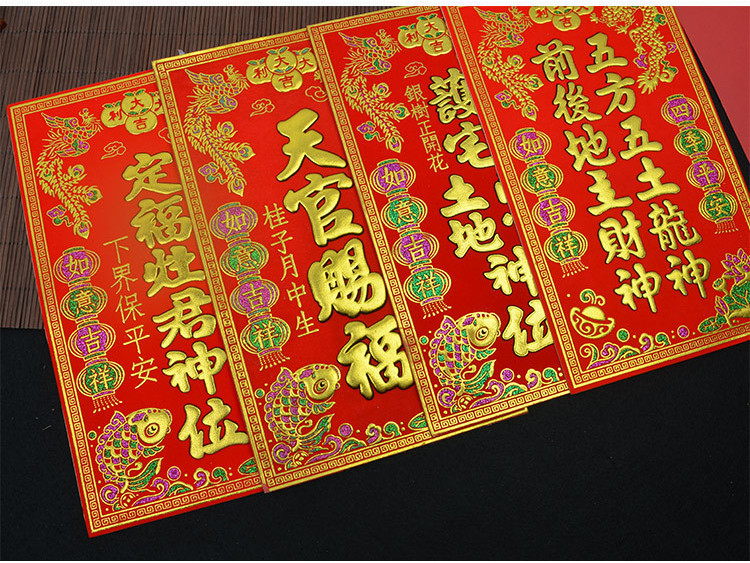 大吉利
定福灶君神位
下界保平安
如意吉祥
大吉大利
天官賜福
桂子月中生
如意吉祥
護宅
土地
神位
銀樹正開花
如意吉祥
五方五土龍神
前後地主財神
四季平安
如意吉祥